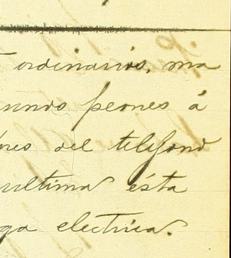 ordinarios, ma
peones á
del teléfono
ultima ésta
ga electrica.